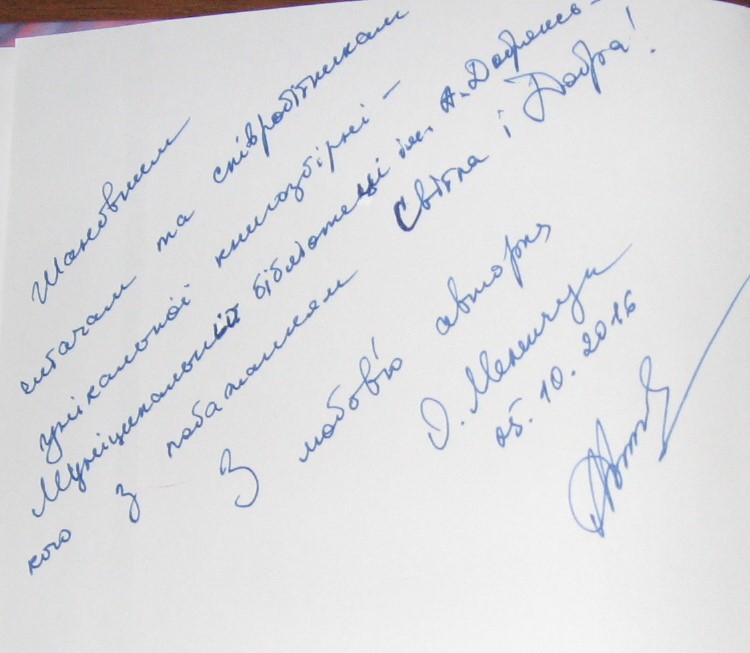 Шановним
читачам та співробітникам
унікальної книгозбірні –
Муніципальній бібліотеці ім. А. Добрянсь-
кого з побажанням Світла і Добра!
З любов'ю авторка
О. Меленчук
05.10.2016